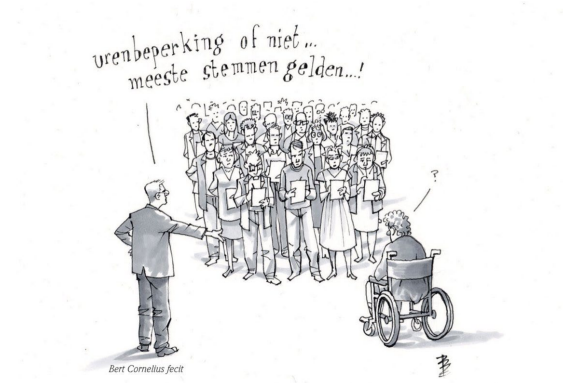 urenbeperking of niet...
meeste stemmen gelden...!
?
Bert Cornelius fecit